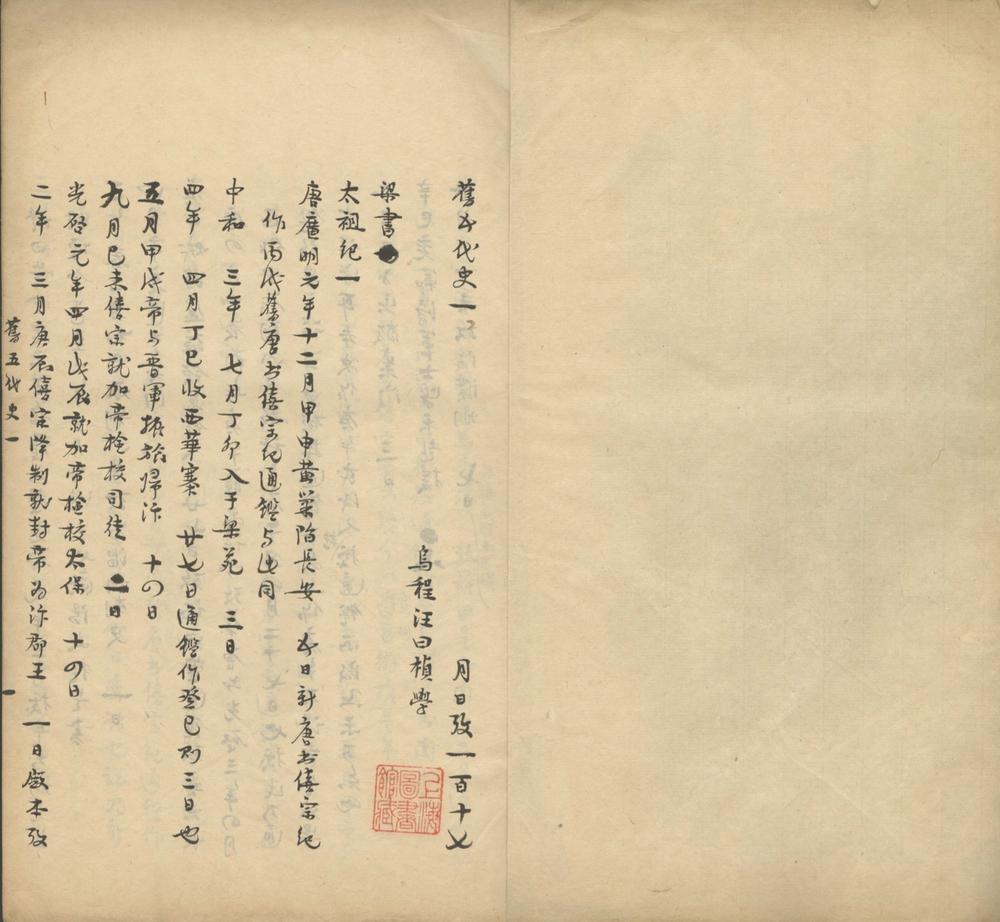 舊五代史一 月日攷一百十七
烏程汪曰楨學
梁書
太祖紀一
唐廣明元年十二月甲申黃巢陷長安 五日新唐書僖宗紀
作丙戌舊唐書僖宗紀通鑑与此同
中和 三年 七月丁卯入于梁苑 三日
四年 四月丁巳收西華寨 廿七日通鑑作癸巳則三日也
五月甲戌帝与晉軍振旅歸汴 十四日
九月己未僖宗就加帝檢校司徒 二日
光啓元年四月戊辰就加帝檢校太保 十四日
二年 三月庚辰僖宗降制就封帝為沛郡王 一日殿本攷
舊五代史一
上海圖書館藏